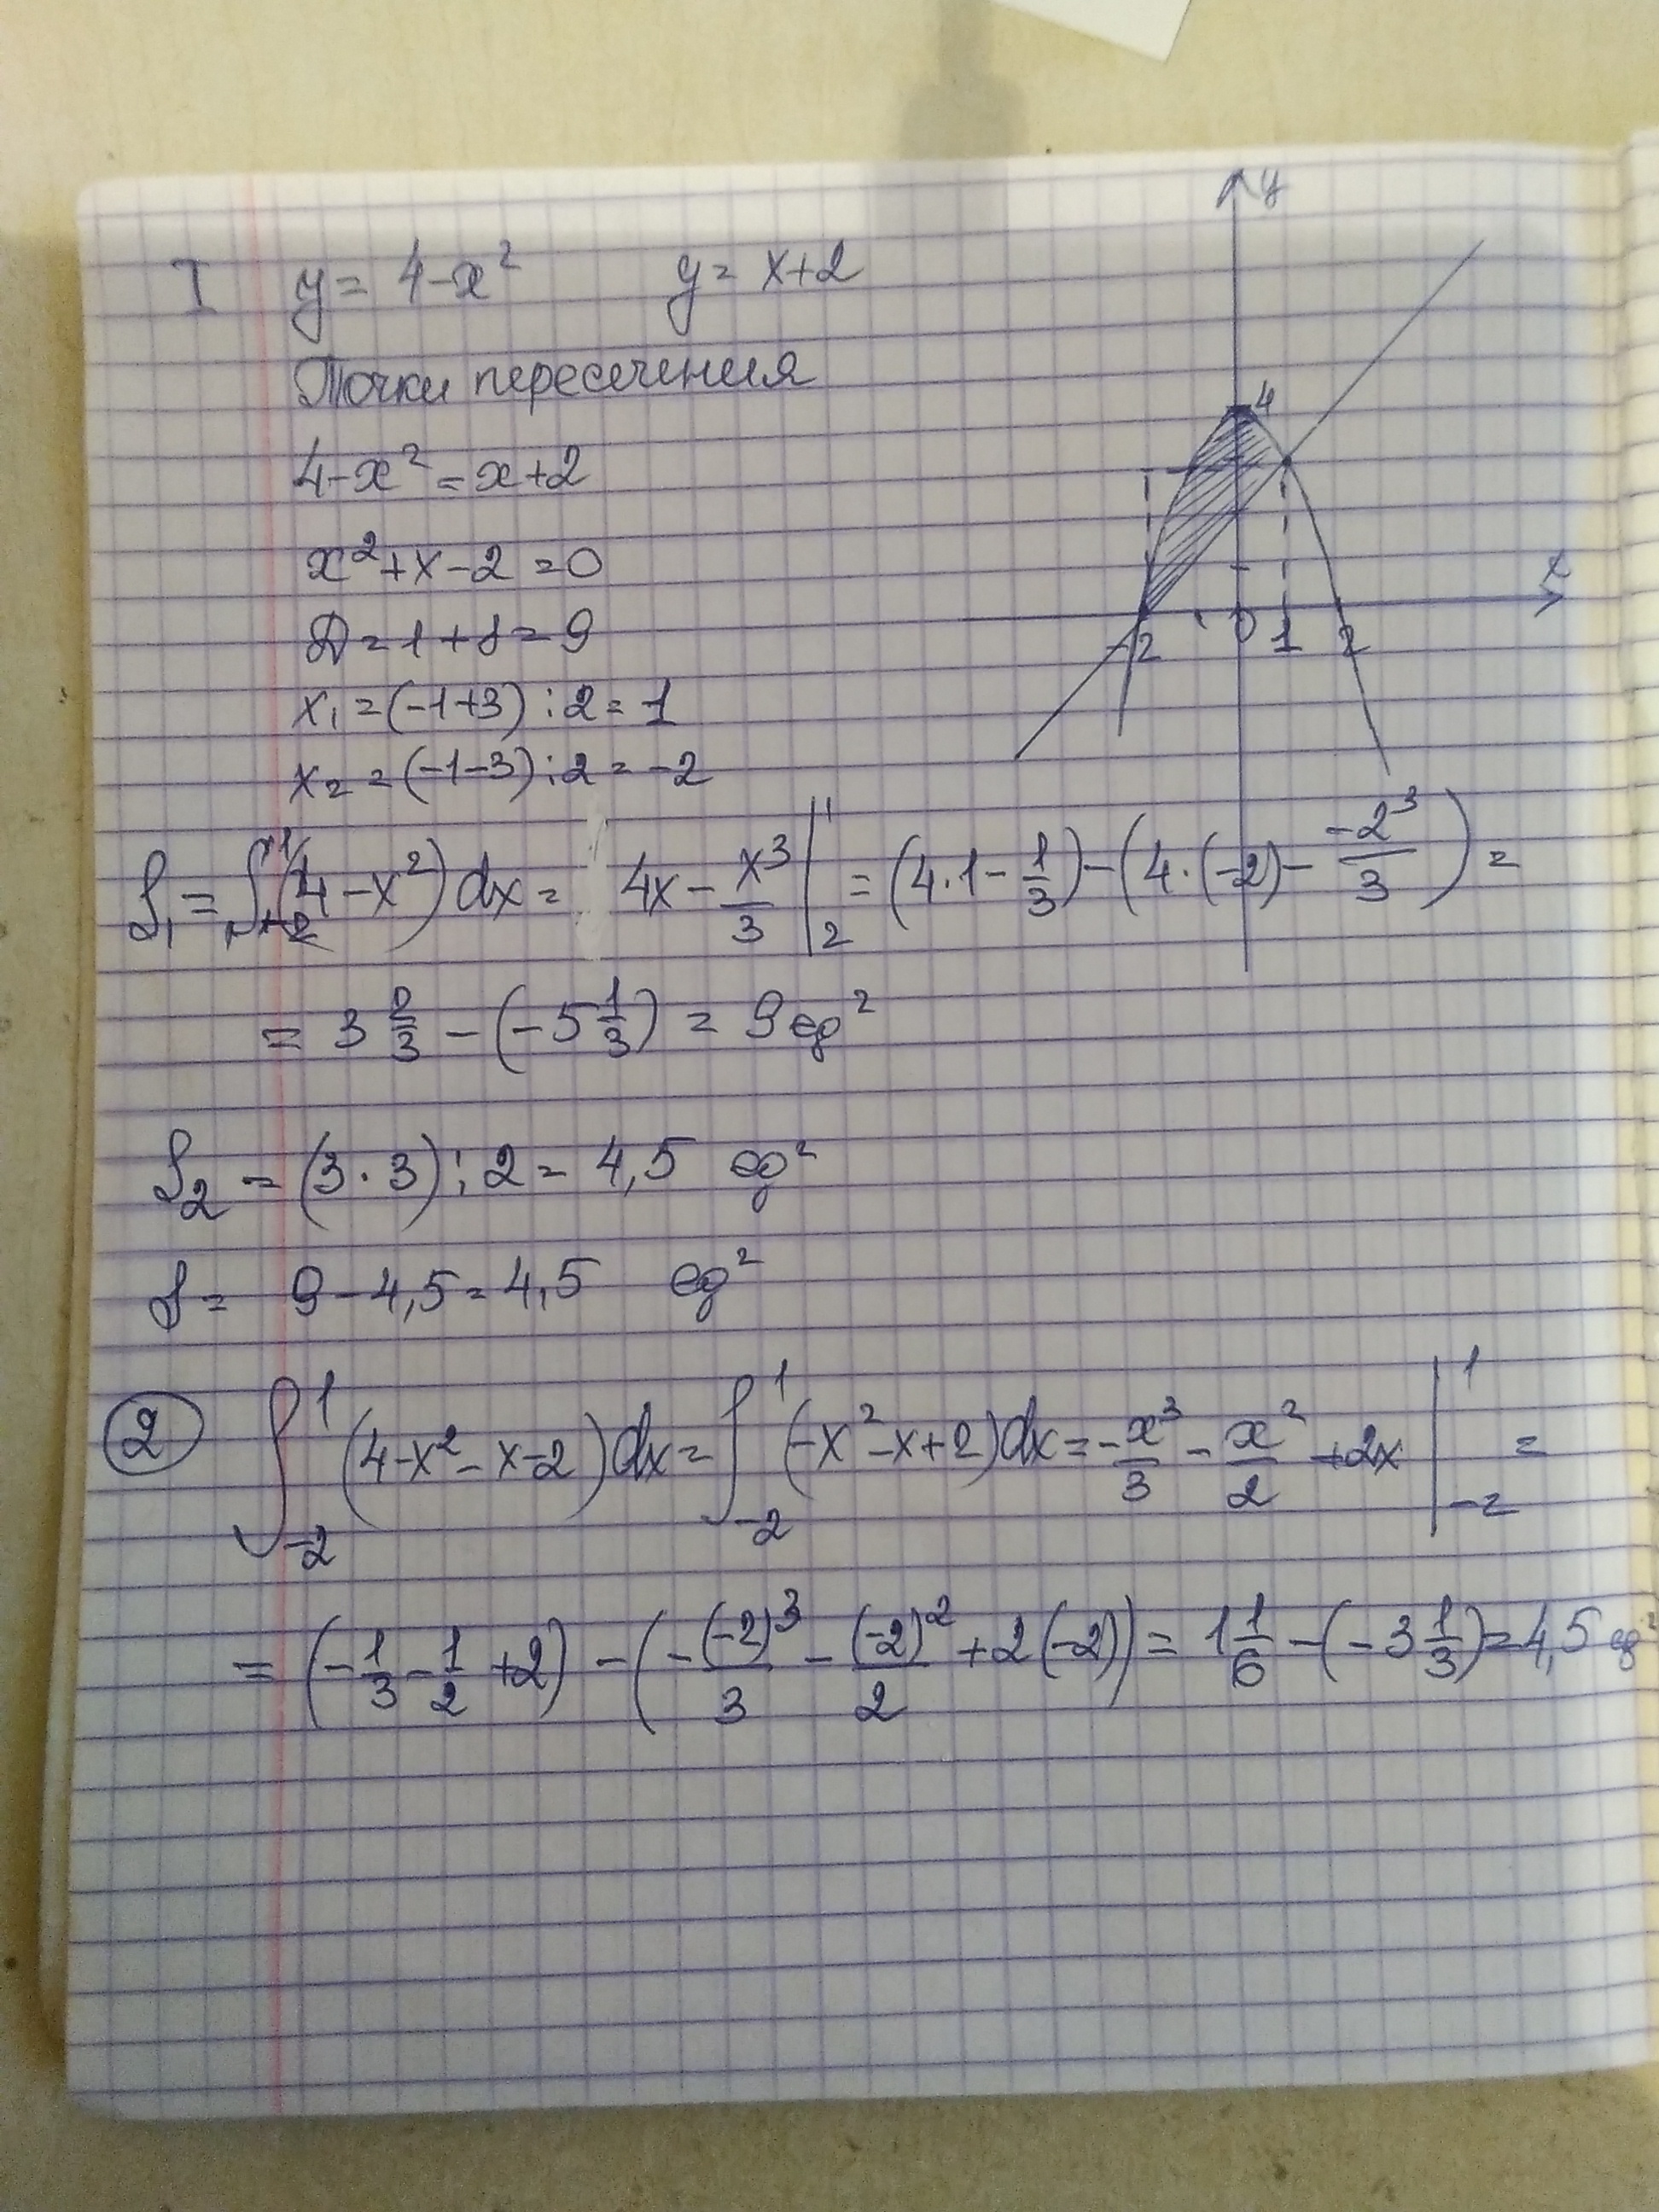 I y = 4-x² y = x+2
Точки пересечения
4-x² = x+2
x²+x-2=0
D=1+8=9
x₁=(-1+3):2=1
x₂=(-1-3):2=-2
S₁ = ∫₋₂¹ (4-x²)dx = 4x - x³/3 |₂¹ = (4·1 - 1/3) - (4·(-2) - -2³/3) =
= 3 2/3 - (-5 1/3) = 9 ед²
S₂ = (3·3):2 = 4,5 ед²
S = 9-4,5=4,5 ед²
2 ∫₋₂¹ (4-x²-x-2)dx = ∫₋₂¹ (-x²-x+2)dx = -x³/3 - x²/2 +2x |₋₂¹ =
= (-1/3 - 1/2 +2) - (-(-2)³/3 - (-2)²/2 + 2(-2)) = 1 1/6 - (-3 1/3) = 4,5 ед²
y
4
x
-2 0 1 2